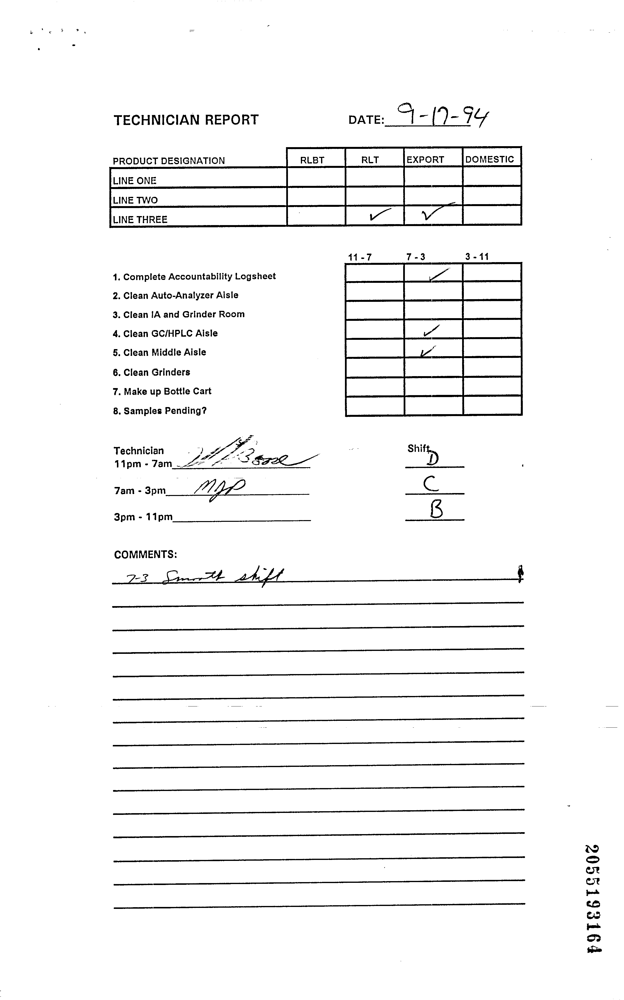 TECHNICIAN REPORT DATE: 9-17-94
PRODUCT DESIGNATION RLBT RLT EXPORT DOMESTIC
LINE ONE
LINE TWO
LINE THREE ✓ ✓
11 - 7 7 - 3 3 - 11
1. Complete Accountability Logsheet ✓
2. Clean Auto-Analyzer Aisle
3. Clean IA and Grinder Room
4. Clean GC/HPLC Aisle ✓
5. Clean Middle Aisle ✓
6. Clean Grinders
7. Make up Bottle Cart
8. Samples Pending?
Technician Shift
11pm - 7am D
7am - 3pm MJP C
3pm - 11pm B
COMMENTS:
7-3 Smooth shift
2055193164